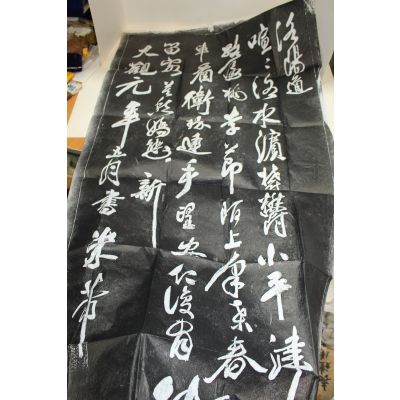 洛陽道
喧〻洛水濱欝欝小平津
路傍桃李節陌上采桑春
車看衛玠連手望安仁復有
留客莫愁嬌態新
大觀元年五月書米芾